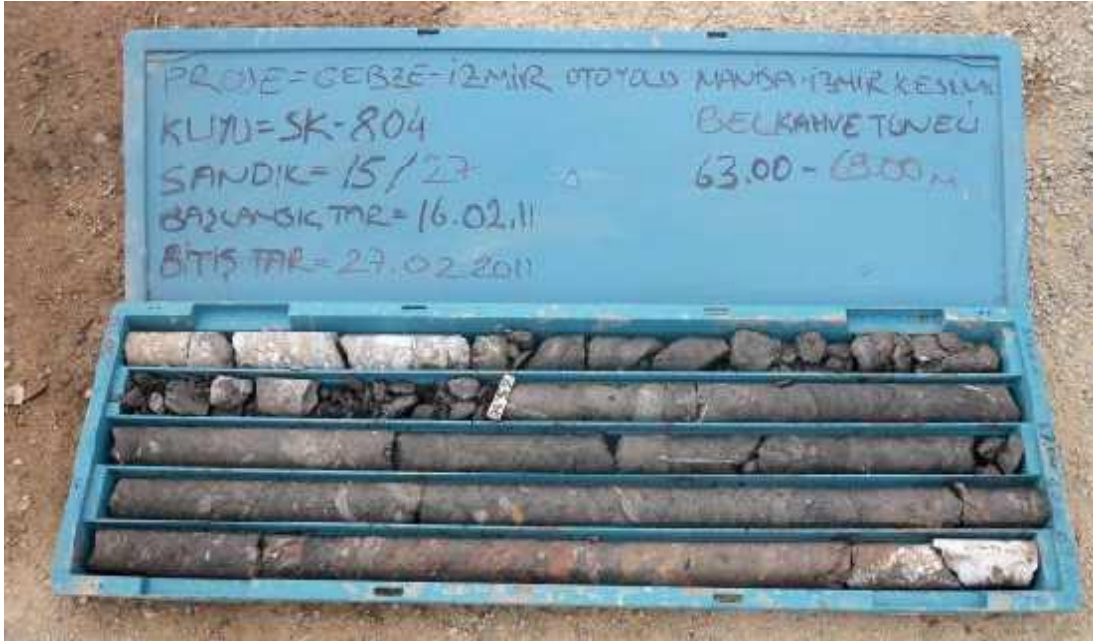 PROJE=GEBZE-İZMİR OTOYOLU MANİSA-İZMİR KESİMİ
KUYU=SK-804 BELKAHVE TÜNELİ
SANDIK=15/27 63.00-69.00 M
BAŞLANGIÇ TAR=16.02.11
BİTİŞ TAR=27.02.2011